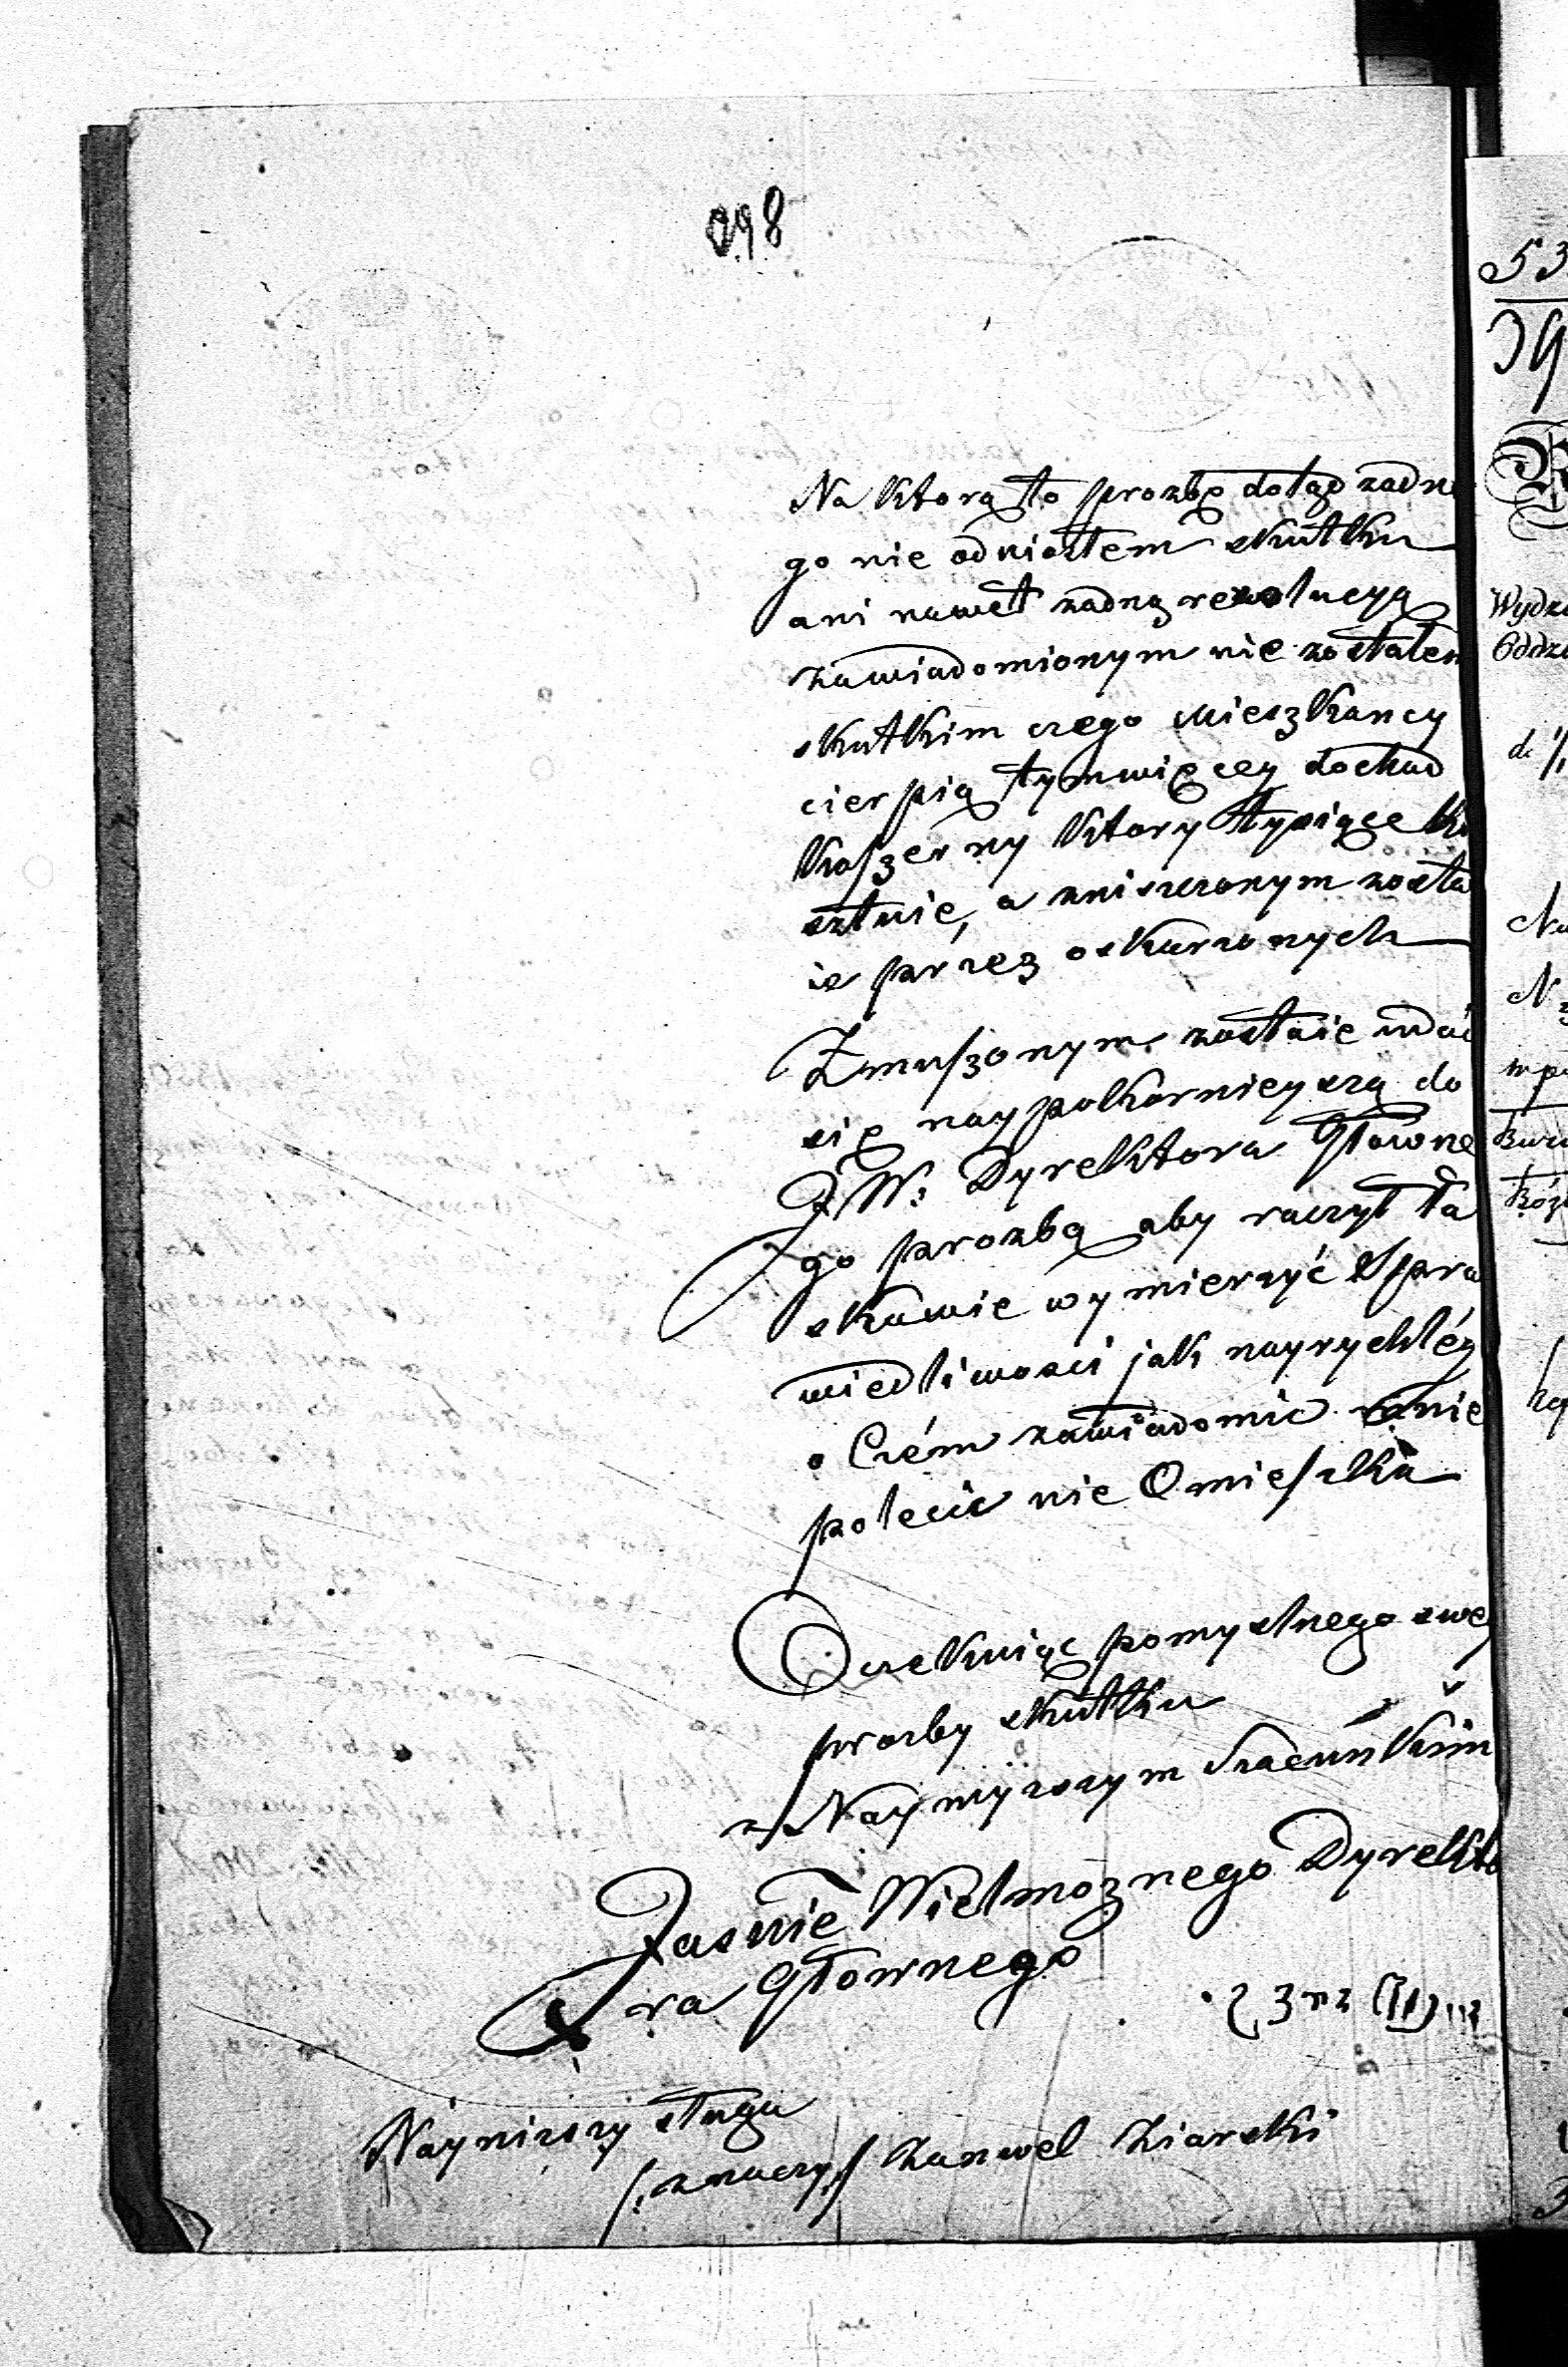 298
Na ktorą to prozbę dotąd zadne
go nie odniosłem skutku
ani nawet zadną rezolucyą
zawiadomionym nie zostałem
skutkim czego Mieszkancy
cierpią tymwięcey dochod
koszerny ktory tysiące ko
sztuie, a zniszczonym zosta
ie przez oskarzonych
Zmuszonym zostaie udać
się naypokornieyszą do
J W: Dyrektora Głowne
go prozbą aby raczył ła
skawie wymierzyć Spra
wiedliwosci jak nayrychléy
o Czém zawiadomić mnie
polecić nie Omieszka
Oczekuiąc pomyslnego swey
prozby skutku
z Naywyzszym Szacunkiem
Jasnie Wielmoznego Dyrekto
ra Głownego
Nayniszszy sługa
/: znaczy :/ Zanwel Ziarski
53
Wydz
Oddz